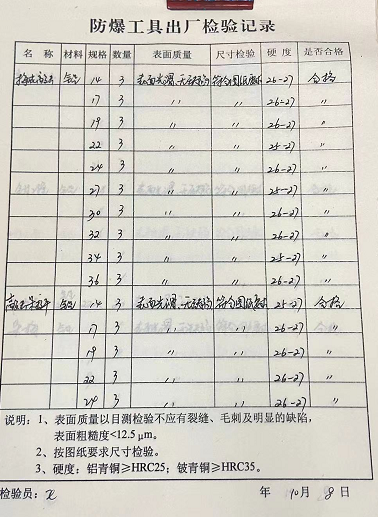 防爆工具出厂检验记录
名 称 材料 规格 数量 表面质量 尺寸检验 硬 度 是否合格
14 3 表面光滑、无裂纹 符合图纸要求 26-27 合格
17 3 〃 〃 26-27 〃
19 3 〃 〃 26-27 〃
22 3 〃 〃 25-27 〃
24 3 〃 〃 26-27 〃
27 3 〃 〃 25-27 〃
30 3 〃 〃 26-27 〃
32 3 〃 〃 26-27 〃
34 3 〃 〃 25-27 〃
36 3 〃 〃 26-27 〃
14 3 表面光滑、无裂纹 符合图纸要求 25-27 合格
17 3 〃 〃 26-27 〃
19 3 〃 〃 26-27 〃
22 3 〃 〃 26-27 〃
24 3 〃 〃 26-27 〃
说明：1、表面质量以目测检验不应有裂缝、毛刺及明显的缺陷，
表面粗糙度<12.5 μm。
2、按图纸要求尺寸检验。
3、硬度：铝青铜≥HRC25；铍青铜≥HRC35。
检验员： 年 10月 8日